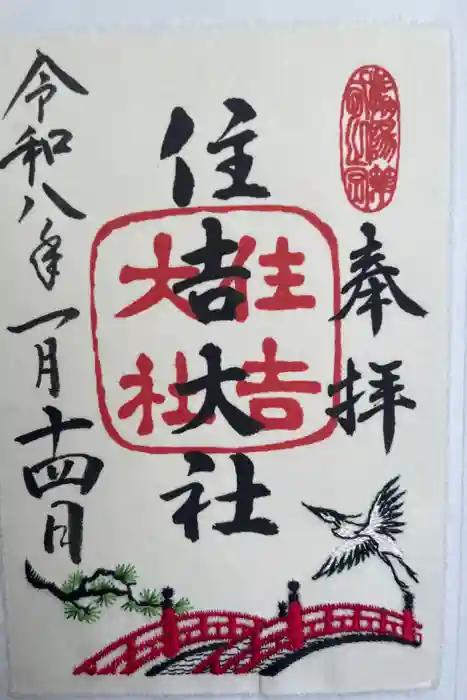 奉拝
住吉大社
住吉
大社
令和八年一月十四日